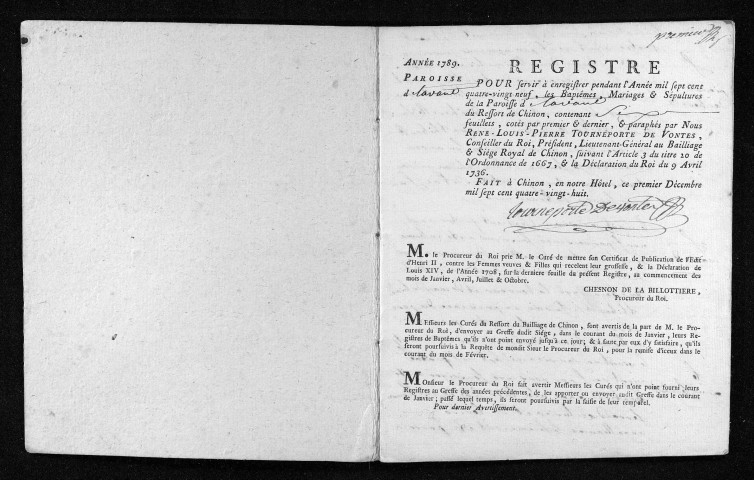 premier
ANNÉE 1789.
PAROISSE
d'
REGISTRE
POUR servir à enregistrer pendant l'Année mil sept cent
quatre-vingt neuf, les Baptêmes, Mariages & Sépultures
de la Paroisse d'
du Ressort de Chinon, contenant
feuillets, cotés par premier & dernier, & paraphés par Nous
RENE-LOUIS-PIERRE TOURNEPORTE DE VONTES,
Conseiller du Roi, Président, Lieutenant-Général au Bailliage
& Siège Royal de Chinon, suivant l'Article 3 du titre 20 de
l'Ordonnance de 1667, & la Déclaration du Roi du 9 Avril
1736.
FAIT à Chinon, en notre Hôtel, ce premier Décembre
mil sept cent quatre-vingt-huit.
Tourneporte Devontes
M. le Procureur du Roi prie M. le Curé de mettre son Certificat de Publication de l'Edit
d'Henri II, contre les Femmes veuves & Filles qui recelent leur grossesse, & la Déclaration de
Louis XIV, de l'Année 1708, sur la derniere feuille du présent Registre, au commencement des
mois de Janvier, Avril, Juillet & Octobre.
CHESNON DE LA BILLOTTIERE,
Procureur du Roi.
MEssieurs les Curés du Ressort du Bailliage de Chinon, sont avertis de la part de M. le Pro-
cureur du Roi, d'envoyer au Greffe dudit Siége, dans le courant du mois de Janvier, leurs Re-
gistres de Baptêmes qu'ils n'ont point envoyé jusqu'à ce jour; & à faute par eux d'y satisfaire, qu'ils
seront poursuivis à la Requête de mondit Sieur le Procureur du Roi, pour la remise d'iceux dans le
courant du mois de Février.
MOnsieur le Procureur du Roi fait avertir Messieurs les Curés qui n'ont point fourni leurs
Registres au Greffe des années précédentes, de les apporter ou envoyer audit Greffe dans le courant
de Janvier; passé lequel temps, ils seront poursuivis par la saisie de leur temporel.
Pour dernier Avertissement.